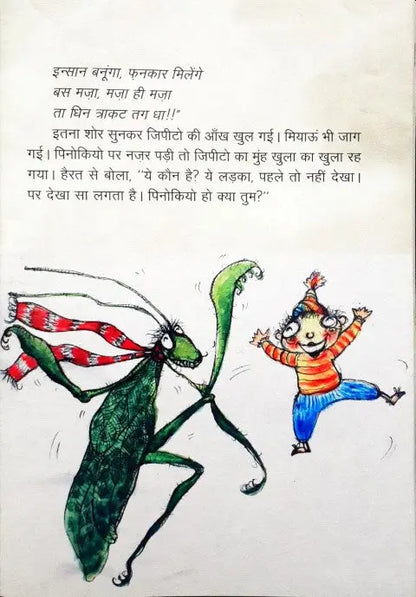 इन्सान बनूंगा, फ़नकार मिलेंगे
बस मज़ा, मज़ा ही मज़ा
ता धिन त्राकट तग धा!!"
इतना शोर सुनकर जिपीटो की आँख खुल गई। मियाऊं भी जाग
गई। पिनोकियो पर नज़र पड़ी तो जिपीटो का मुंह खुला का खुला रह
गया। हैरत से बोला, "ये कौन है? ये लड़का, पहले तो नहीं देखा।
पर देखा सा लगता है। पिनोकियो हो क्या तुम?"